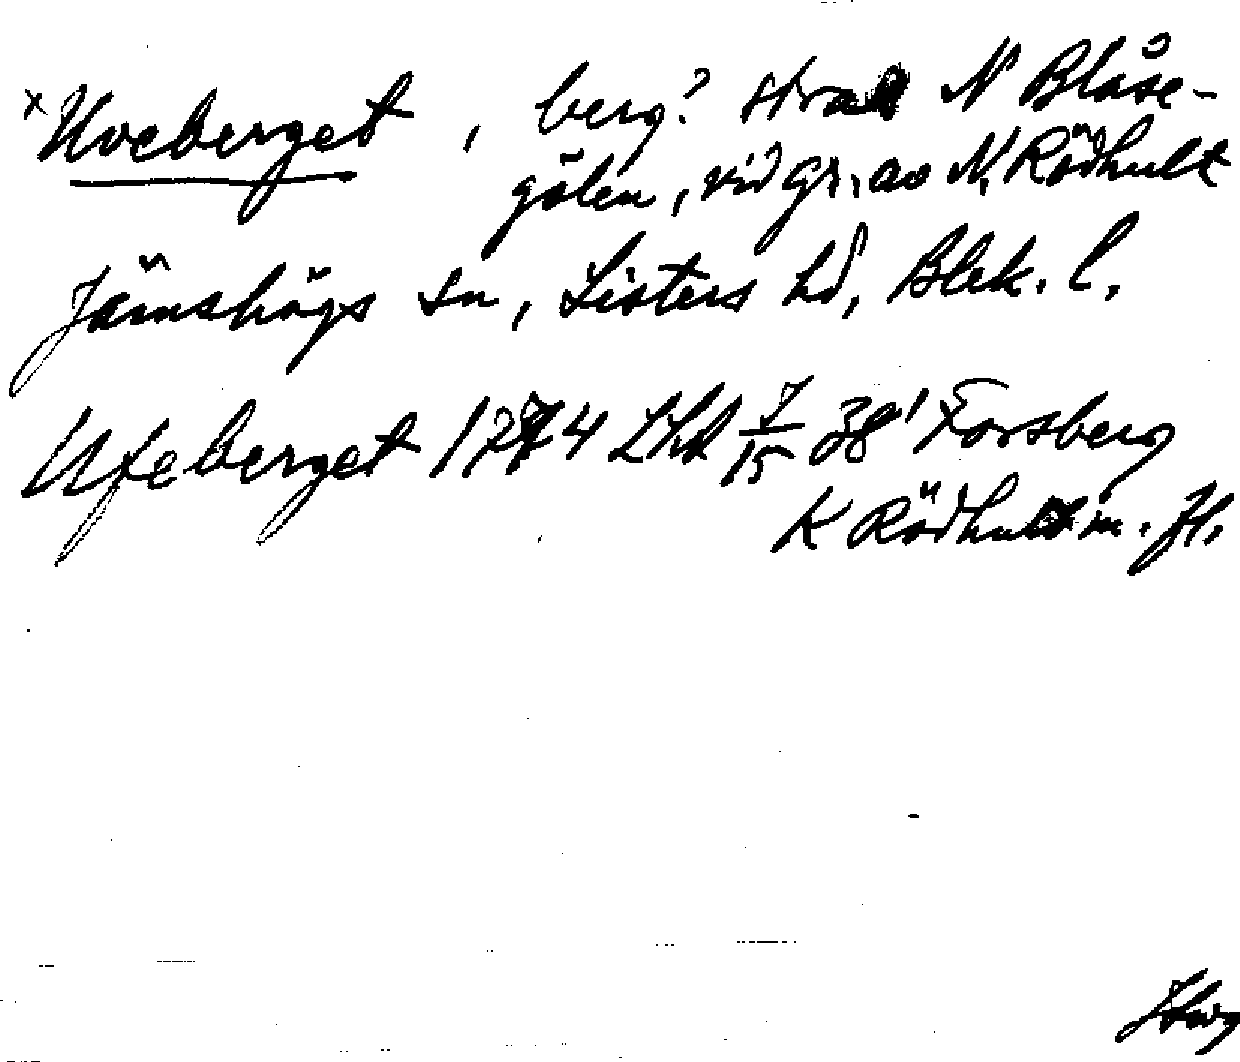 x Uveberget, berg? strax N Blåse-
gölen, vid gr. av N. Rödhult
Jämshögs sn, Listers hd, Blek. l.
Ufeberget 1774 Lhd 7/15 38' Forsberg
K Rödhult m. fl.